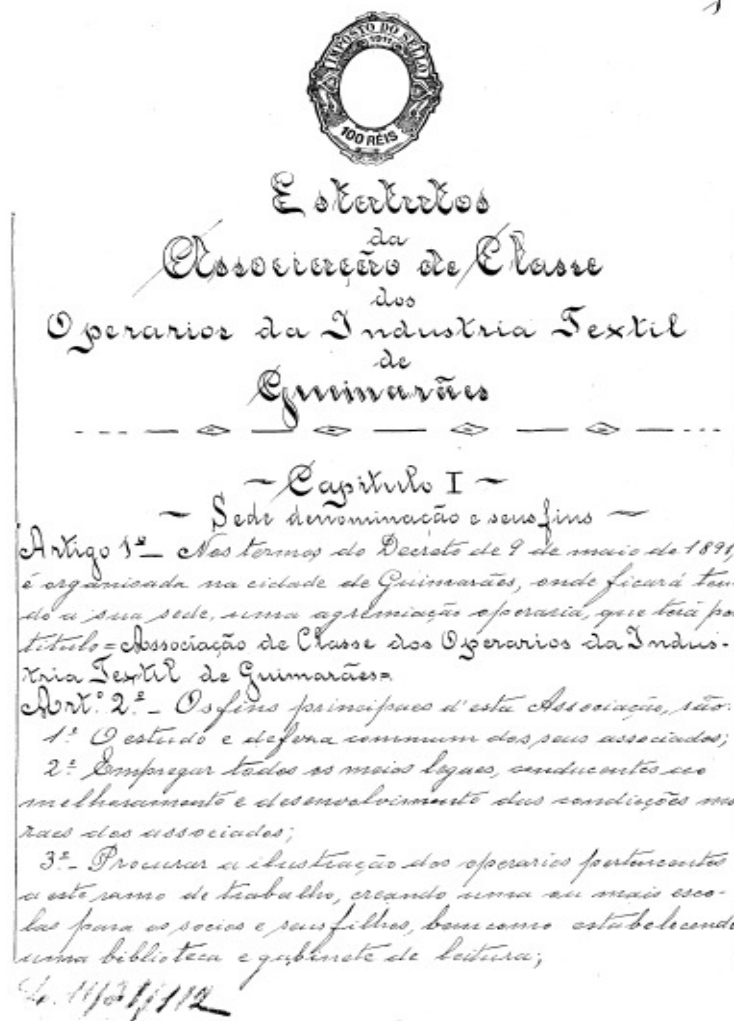 1
IMPOSTO DO SELLO
1911
100 RÉIS
Estatutos
da
Associação de Classe
dos
Operarios da Industria Textil
de
Guimarães
~ Capitulo I ~
~ Sede denominação e seus fins ~
Artigo 1º _ Nos termos do Decreto de 9 de maio de 1891,
é organisada na cidade de Guimarães, onde ficará ten-
do a sua sede, uma agremiação operaria, que terá por
titulo = Associação de Classe dos Operarios da Indus-
tria Textil de Guimarães =
Art.º 2º _ Os fins principaes d'esta Associação, são:
1º O estudo e defeza commum dos seus associados;
2º Empregar todos os meios legaes, conducentes ao
melhoramento e desenvolvimento das condições mo-
raes dos associados;
3º _ Procurar a illustração dos operarios pertencentes
a este ramo de trabalho, creando uma ou mais esco-
las para os socios e seus filhos, bem como estabelecendo
uma biblioteca e gabinete de leitura;